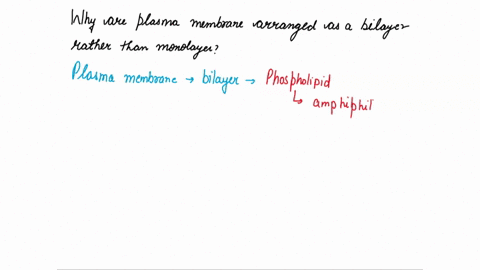 Why are plasma membrane arranged as a bilayer
rather than monolayer?
Plasma membrane → bilayer → Phospholipid
↳ amphiphil